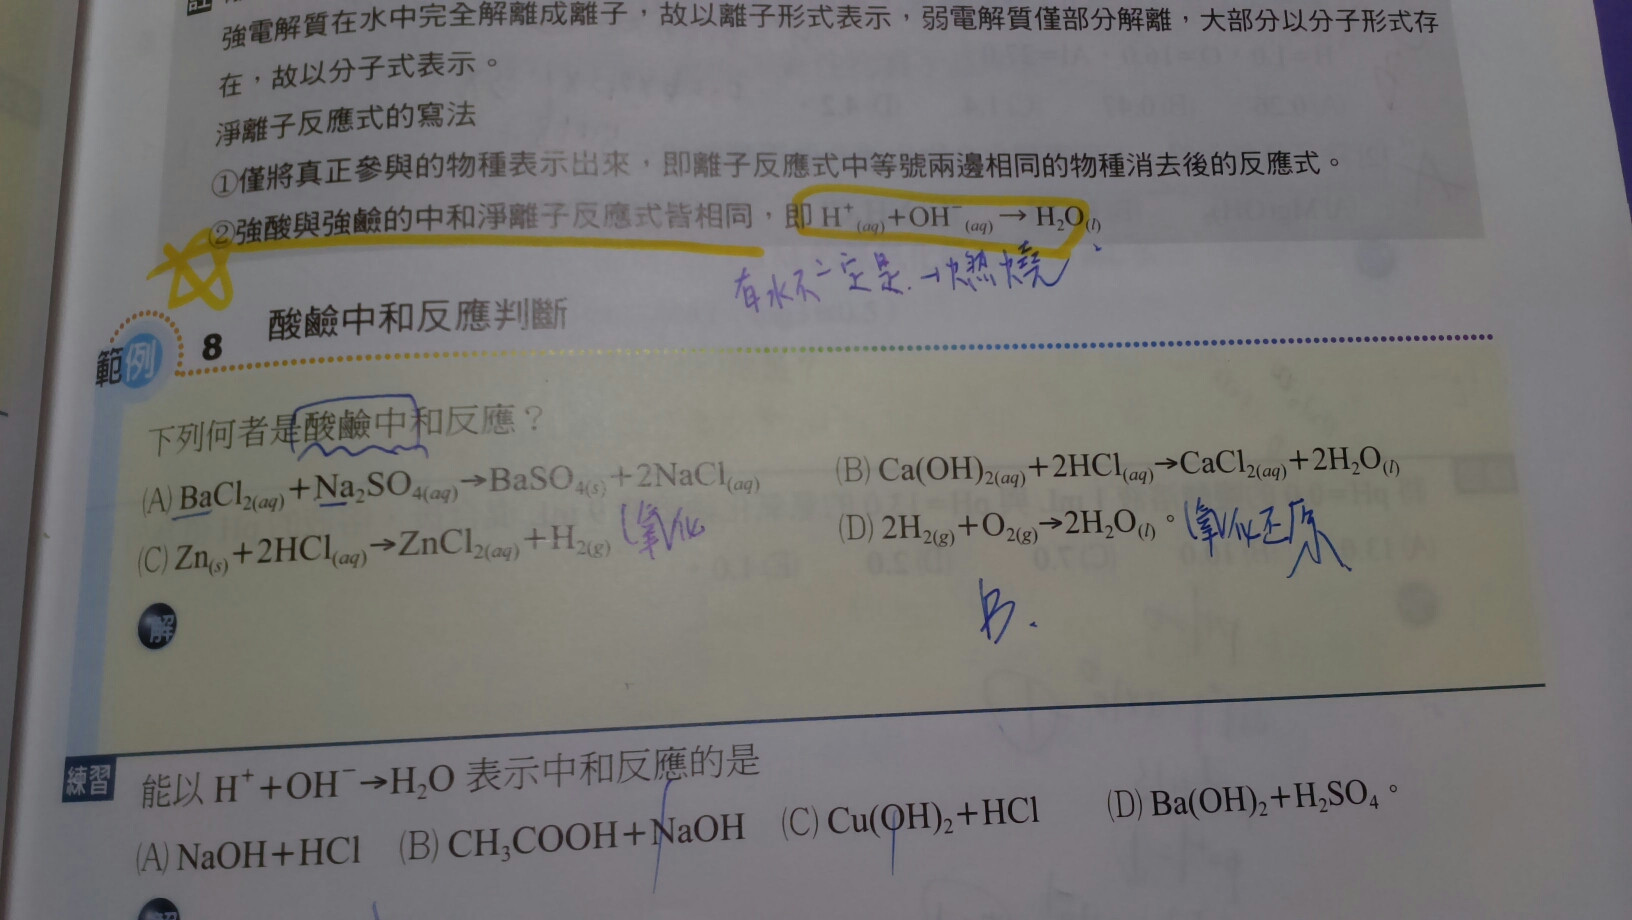 註
強電解質在水中完全解離成離子，故以離子形式表示，弱電解質僅部分解離，大部分以分子形式存
在，故以分子式表示。
淨離子反應式的寫法
①僅將真正參與的物種表示出來，即離子反應式中等號兩邊相同的物種消去後的反應式。
②強酸與強鹼的中和淨離子反應式皆相同，即 H⁺(aq)+OH⁻(aq)→H₂O(l)
有水不一定是→燃燒
範例 8 酸鹼中和反應判斷
下列何者是酸鹼中和反應？
(A) BaCl₂(aq)+Na₂SO₄(aq)→BaSO₄(s)+2NaCl(aq) (B) Ca(OH)₂(aq)+2HCl(aq)→CaCl₂(aq)+2H₂O(l)
(C) Zn(s)+2HCl(aq)→ZnCl₂(aq)+H₂(g) 氧化 (D) 2H₂(g)+O₂(g)→2H₂O(l)。 氧化还原
解
B.
練習 能以 H⁺+OH⁻→H₂O 表示中和反應的是
(A) NaOH+HCl (B) CH₃COOH+NaOH (C) Cu(OH)₂+HCl (D) Ba(OH)₂+H₂SO₄。